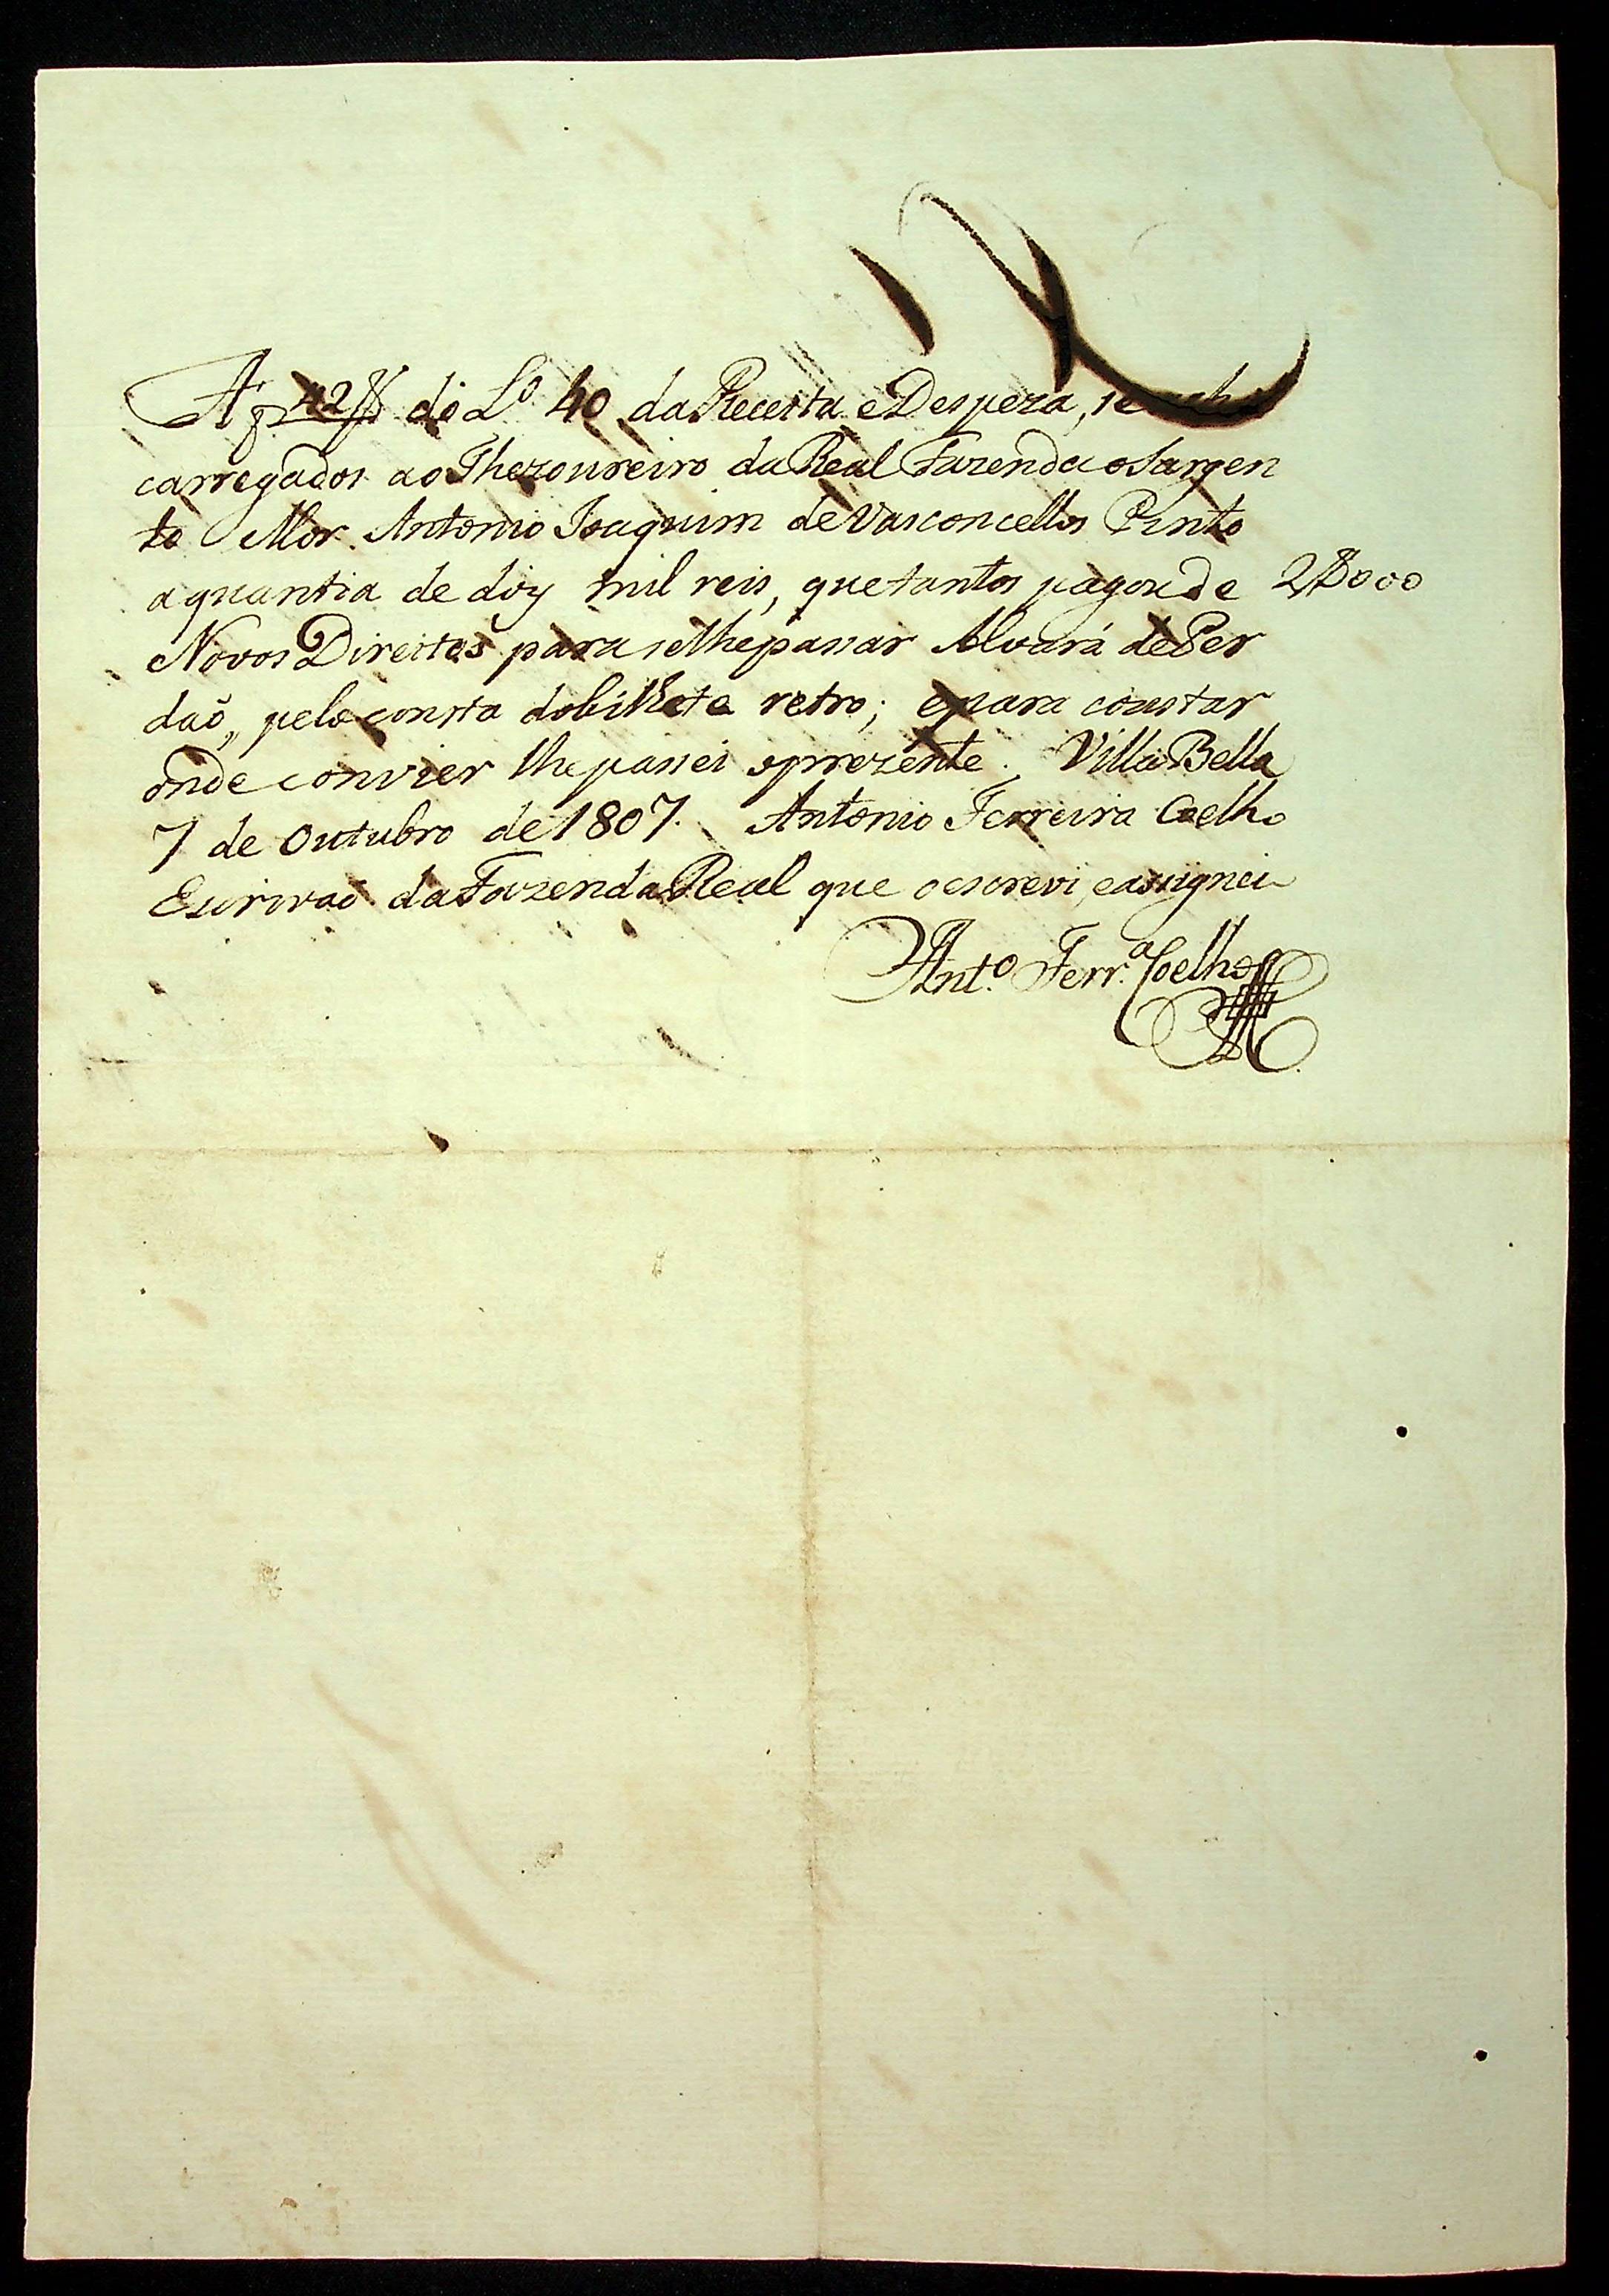 A f 42 V do L.º 40 da Receita e Despeza, se acha
carregados ao Thezoureiro da Real Fazenda o Sargen
to Mor Antonio Joaquim de Vasconcellos Pinto
a quantia de dois mil reis, que tantos pagou de 2$000
Novos Direitos para se lhe passar Alvará de Per
daõ, pelo consta do bilhete retro; e para constar
onde convier lhe passei o prezente. Villa Bella
7 de Outubro de 1807. Antonio Ferreira Coelho
Escrivaõ da Fazenda Real que o escrevi, e assignei
Ant.º Ferr.ª Coelho